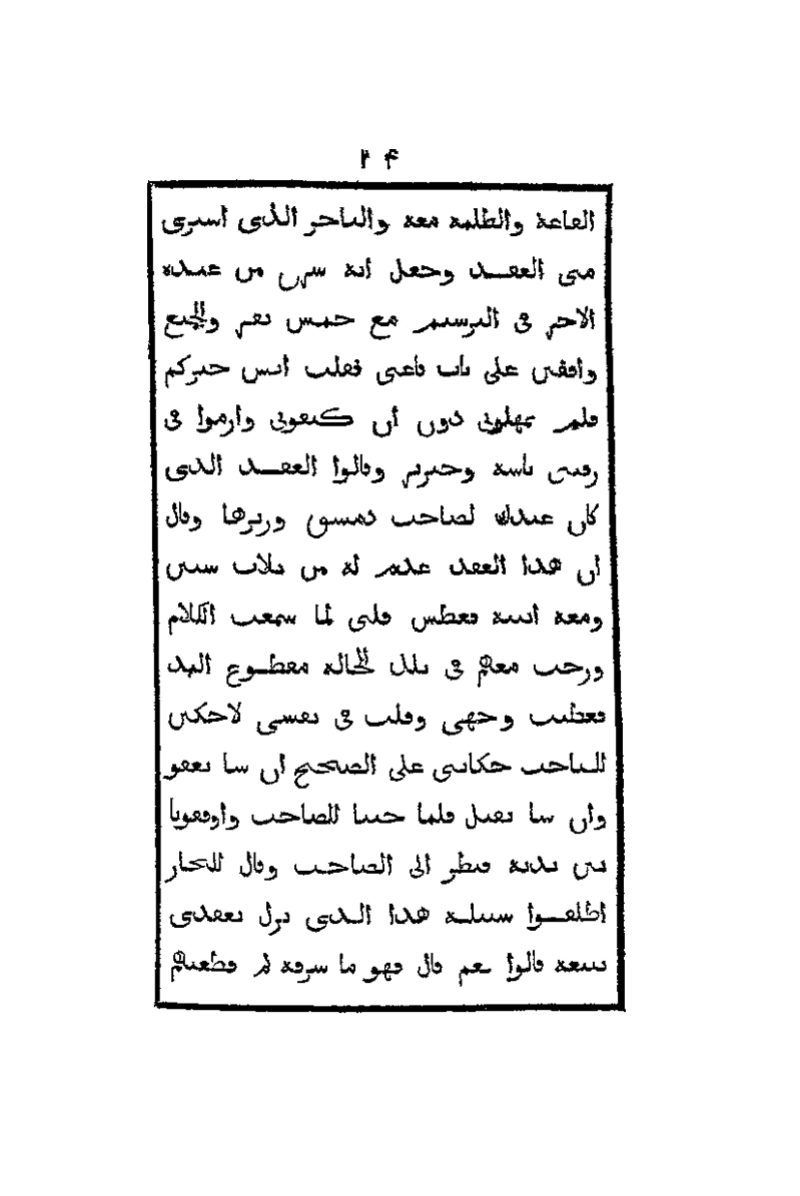 ١۴
القاعة والظلمة معه والتاجر الذى اسبرى
منى العقد وجعل انه سرق من عنده
الاحر فى الترسيم مع خمس نفر والجميع
واقفين على باب قاعتى فقلت ايس خبركم
فلم يمهلونى دون ان كتفونى وارموا فى
رقبتى باسة وجنزير وقالوا العقد الذى
كان عندك لصاحب دمسق وزيرها وقال
ان هذا العقد عدم له من ثلاث سنين
ومعه ابنته فغطس قلبى لما سمعت الكلام
ورحت معهم فى تلك الحاله مقطوع اليد
فغطيت وجهى وقلت فى نفسى لاحكين
للصاحب حكايتى على الصحيح ان سا يعفو
وان سا يقتل فلما جينا للصاحب واوقفونا
بين يديه فنظر الى الصاحب وقال للتجار
اطلقوا سبيله هذا الذى نزل بعقدى
يبيعه قالوا نعم قال فهو ما سرقه لم قطعتم